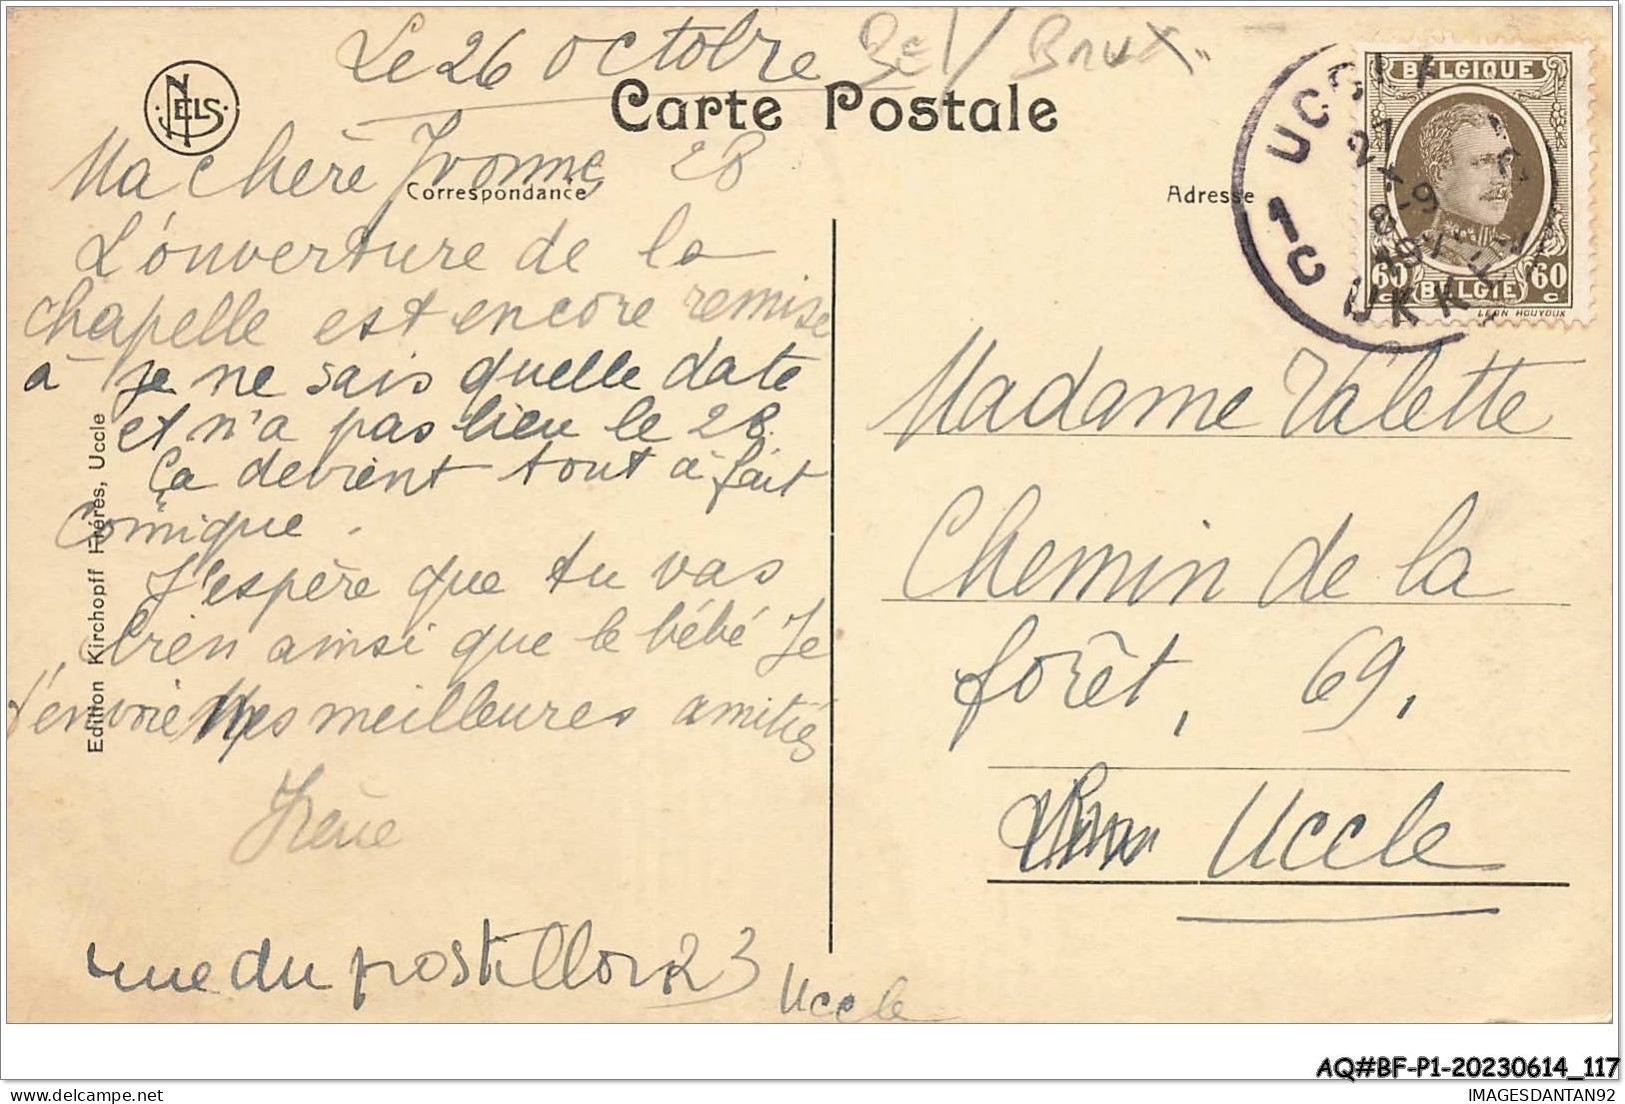 Le 26 octobre
Bel/Brux.
NELS
Carte Postale
28
Ma chère Yvonne
Correspondance
Adresse
L'ouverture de la
chapelle est encore remise
à je ne sais quelle date
et n'a pas lieu le 28.
Ça devient tout à fait
Comique.
J'espère que tu vas
bien ainsi que le bébé Je
t'envoie mes meilleures amitiés
Irène
rue du postillon 23
Uccle
Edition Kirchopff Frères, Uccle
UCCLE
1C
UKKEL
BELGIQUE
60 60
c c
BELGIE
LEON HOUYOUX
Madame Valette
Chemin de la
forêt, 69,
Uccle
AQ#BF-P1-20230614_117
delcampe.net
IMAGESDANTAN92